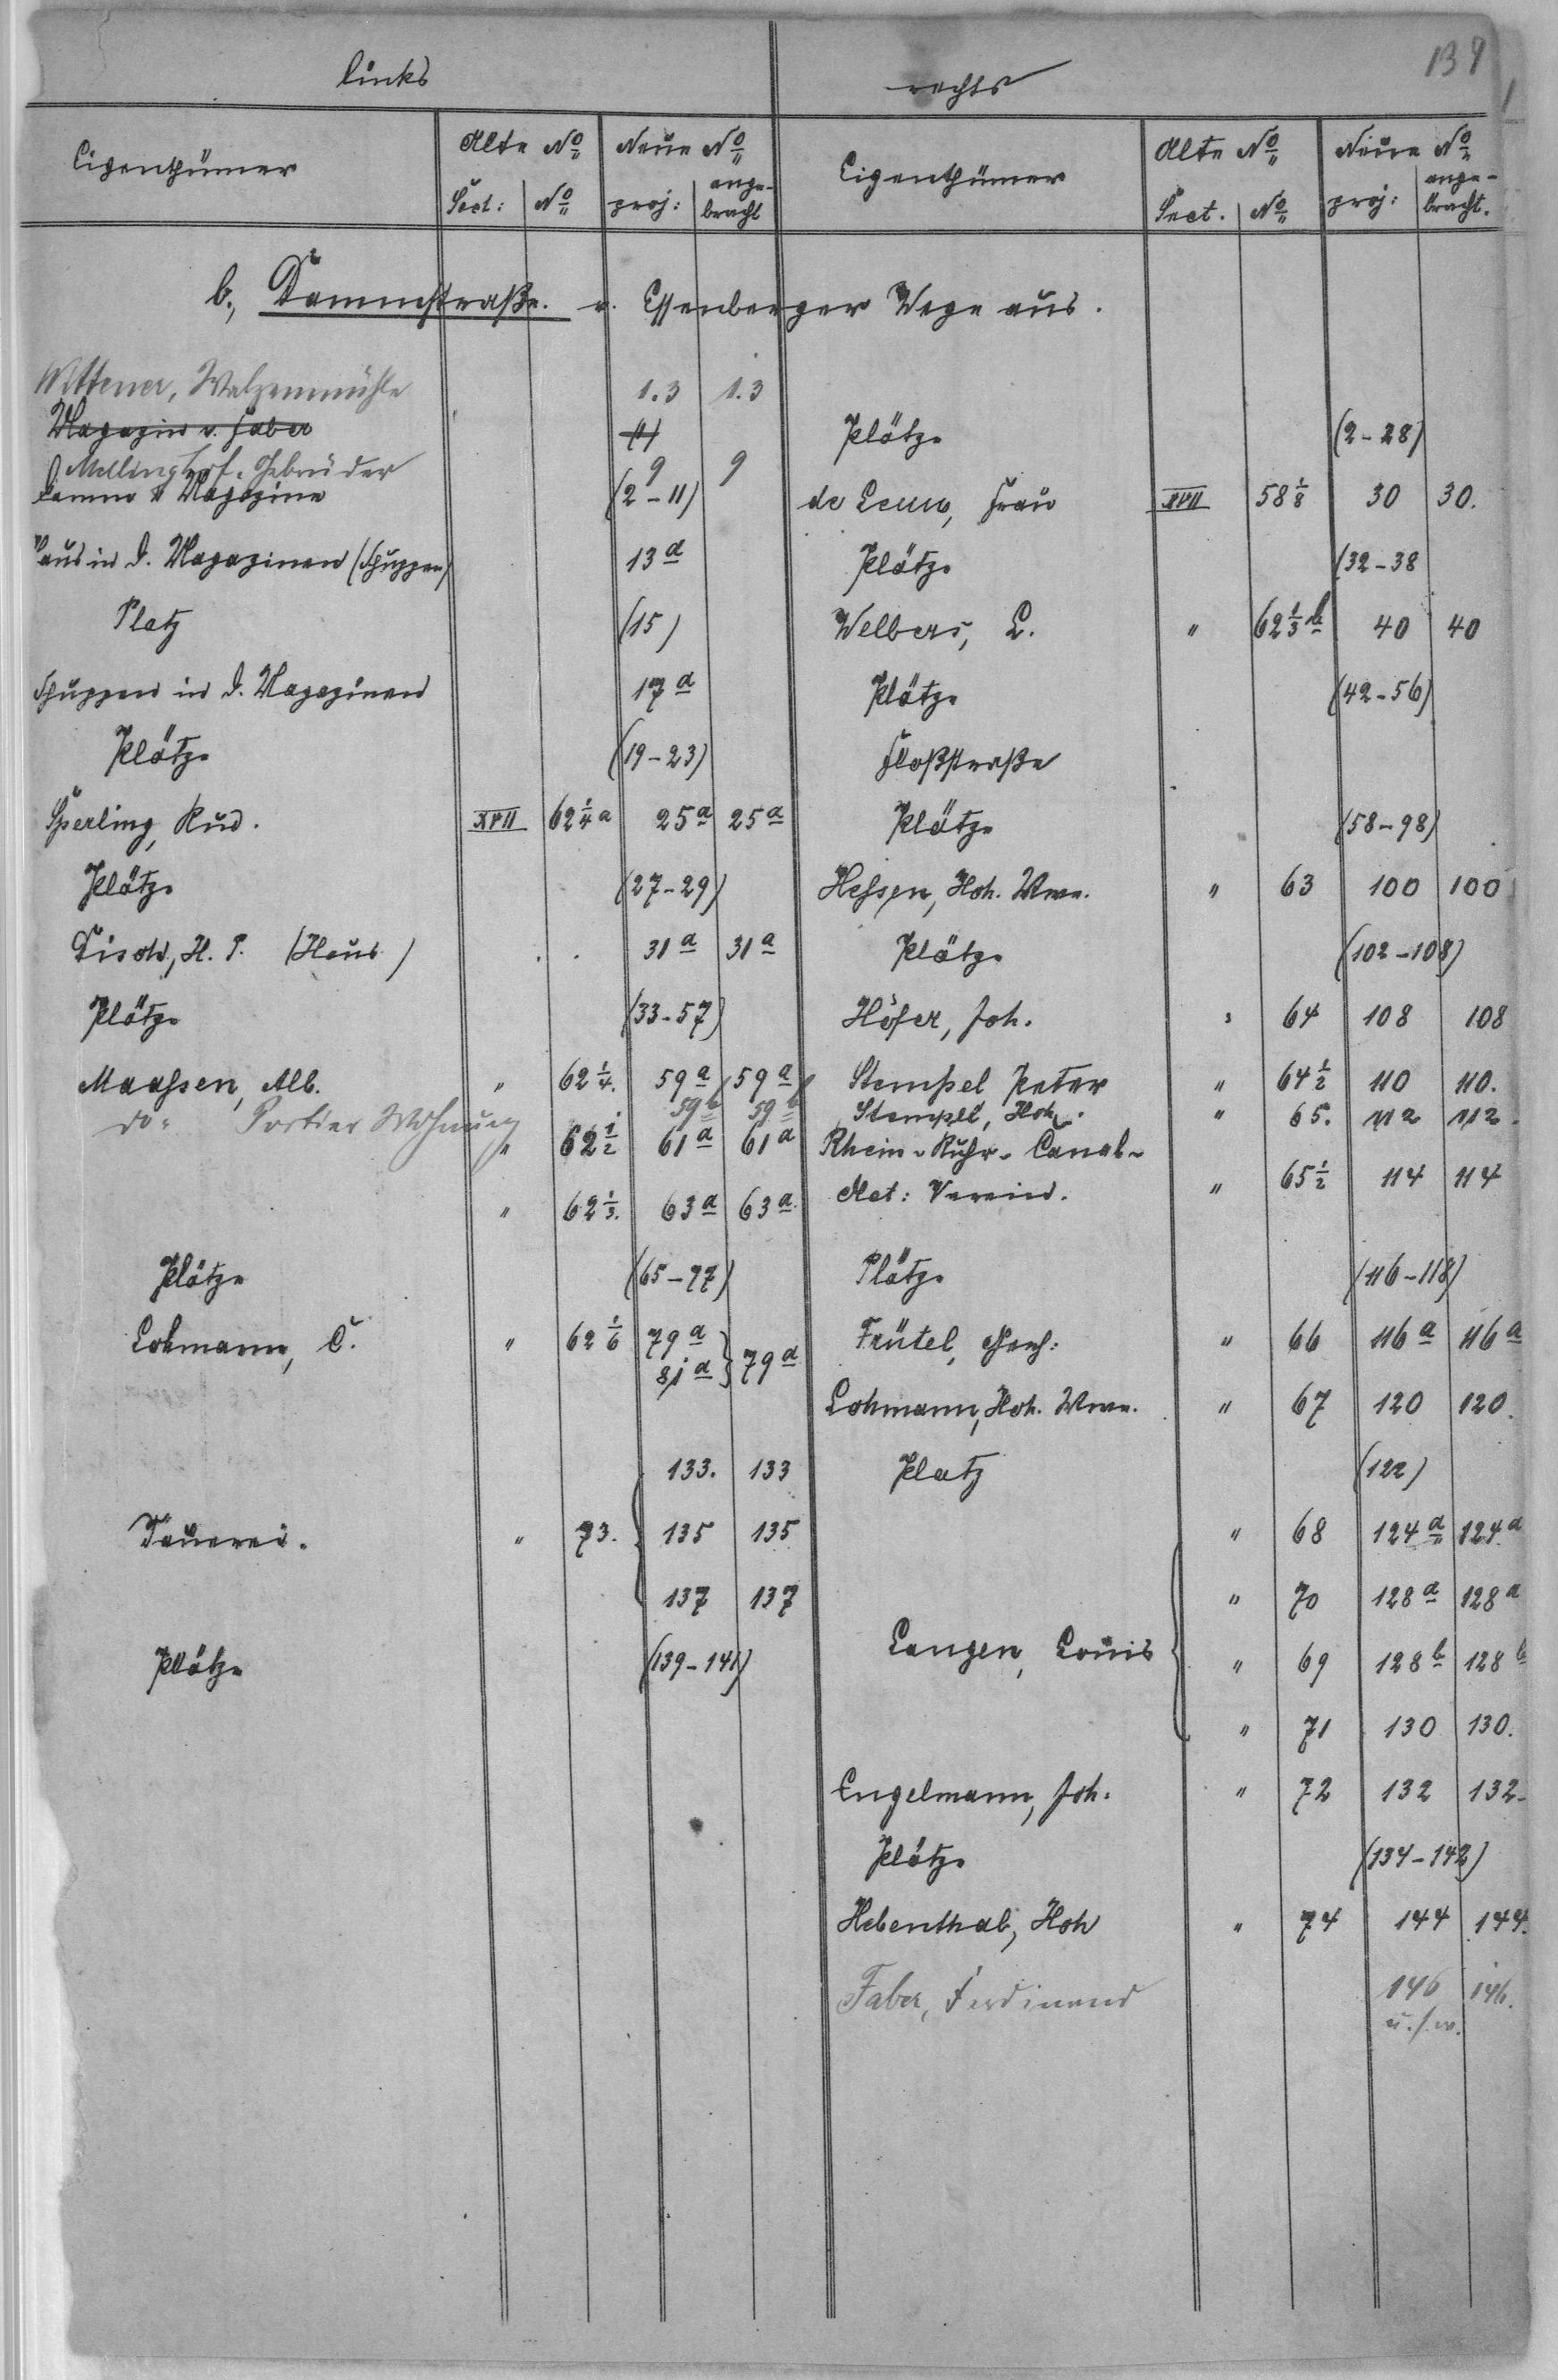 139
links
rechts
Eigenthümer Alte No Neue No Eigenthümer Alte No Neue No
Sect: No proj: ange-bracht Sect. No proj: ange-bracht.
b., Dammstraße. v. Essenberger Wege aus.
Wittener, Walzenmühle 1.3 1.3
Magazin v. Faber (1) Plätze (2-28)
Mellinghof. Gebrüder 9 9
Magazine (2-11) de Leuw, Frau XVII 58 1/8 30 30.
Haus in d. Magazinen (Schuppen) 13a Plätze (32-38
Platz (15) Welbers, L. " 62 1/3 b 40 40
Schuppen in d. Magazinen 17a Plätze (42-56)
Plätze (19-23) Floßstraße
Sperling, Rud. XVII 62 1/4 a 25a 25a Plätze (58-98)
Plätze (27-29) Hessen, Hch. Wwe. " 63 100 100
Disch, H. P. (Haus) 31a 31a Plätze (102-108)
Plätze (33-57) Höfer, Joh. " 64 108 108
Maassen, Alb. " 62 1/4. 59a 59a Stempel Peter " 64 1/2 110 110.
do. Portier Wohnung 59b 59b Stempel, Hch. " 65. 112 112.
" 62 1/2 61a 61a Rhein-Ruhr-Canal-
Act: Verein. " 65 1/2 114 114
" 62 1/3. 63a 63a
Plätze (65-77) Plätze (116-118)
Lohmann, C. " 62 1/6 79a 81a } 79a Trütel, Gerh: " 66 116a 116a
Lohmann, Hch. Wwe. " 67 120 120.
133. 133 Platz (122)
Tauerei. " 73. 135 135 " 68 124a 124a
137 137 " 70 128a 128a
Plätze (139-141) Langen, Louis " 69 128b 128b
" 71 130 130.
Engelmann, Joh. " 72 132 132.
Plätze (134-142)
Hebenthal, Hch " 74 144 144.
Faber, Ferdinand 146 146.
u.s.w.